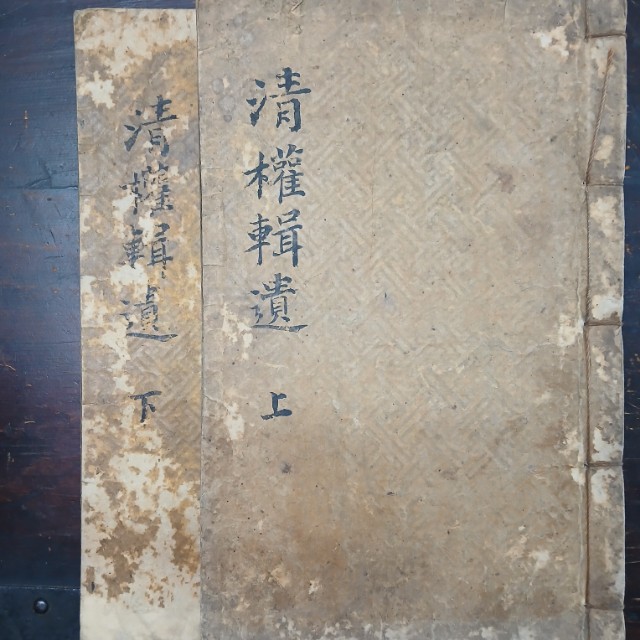 清權輯遺 上
清權輯遺 下